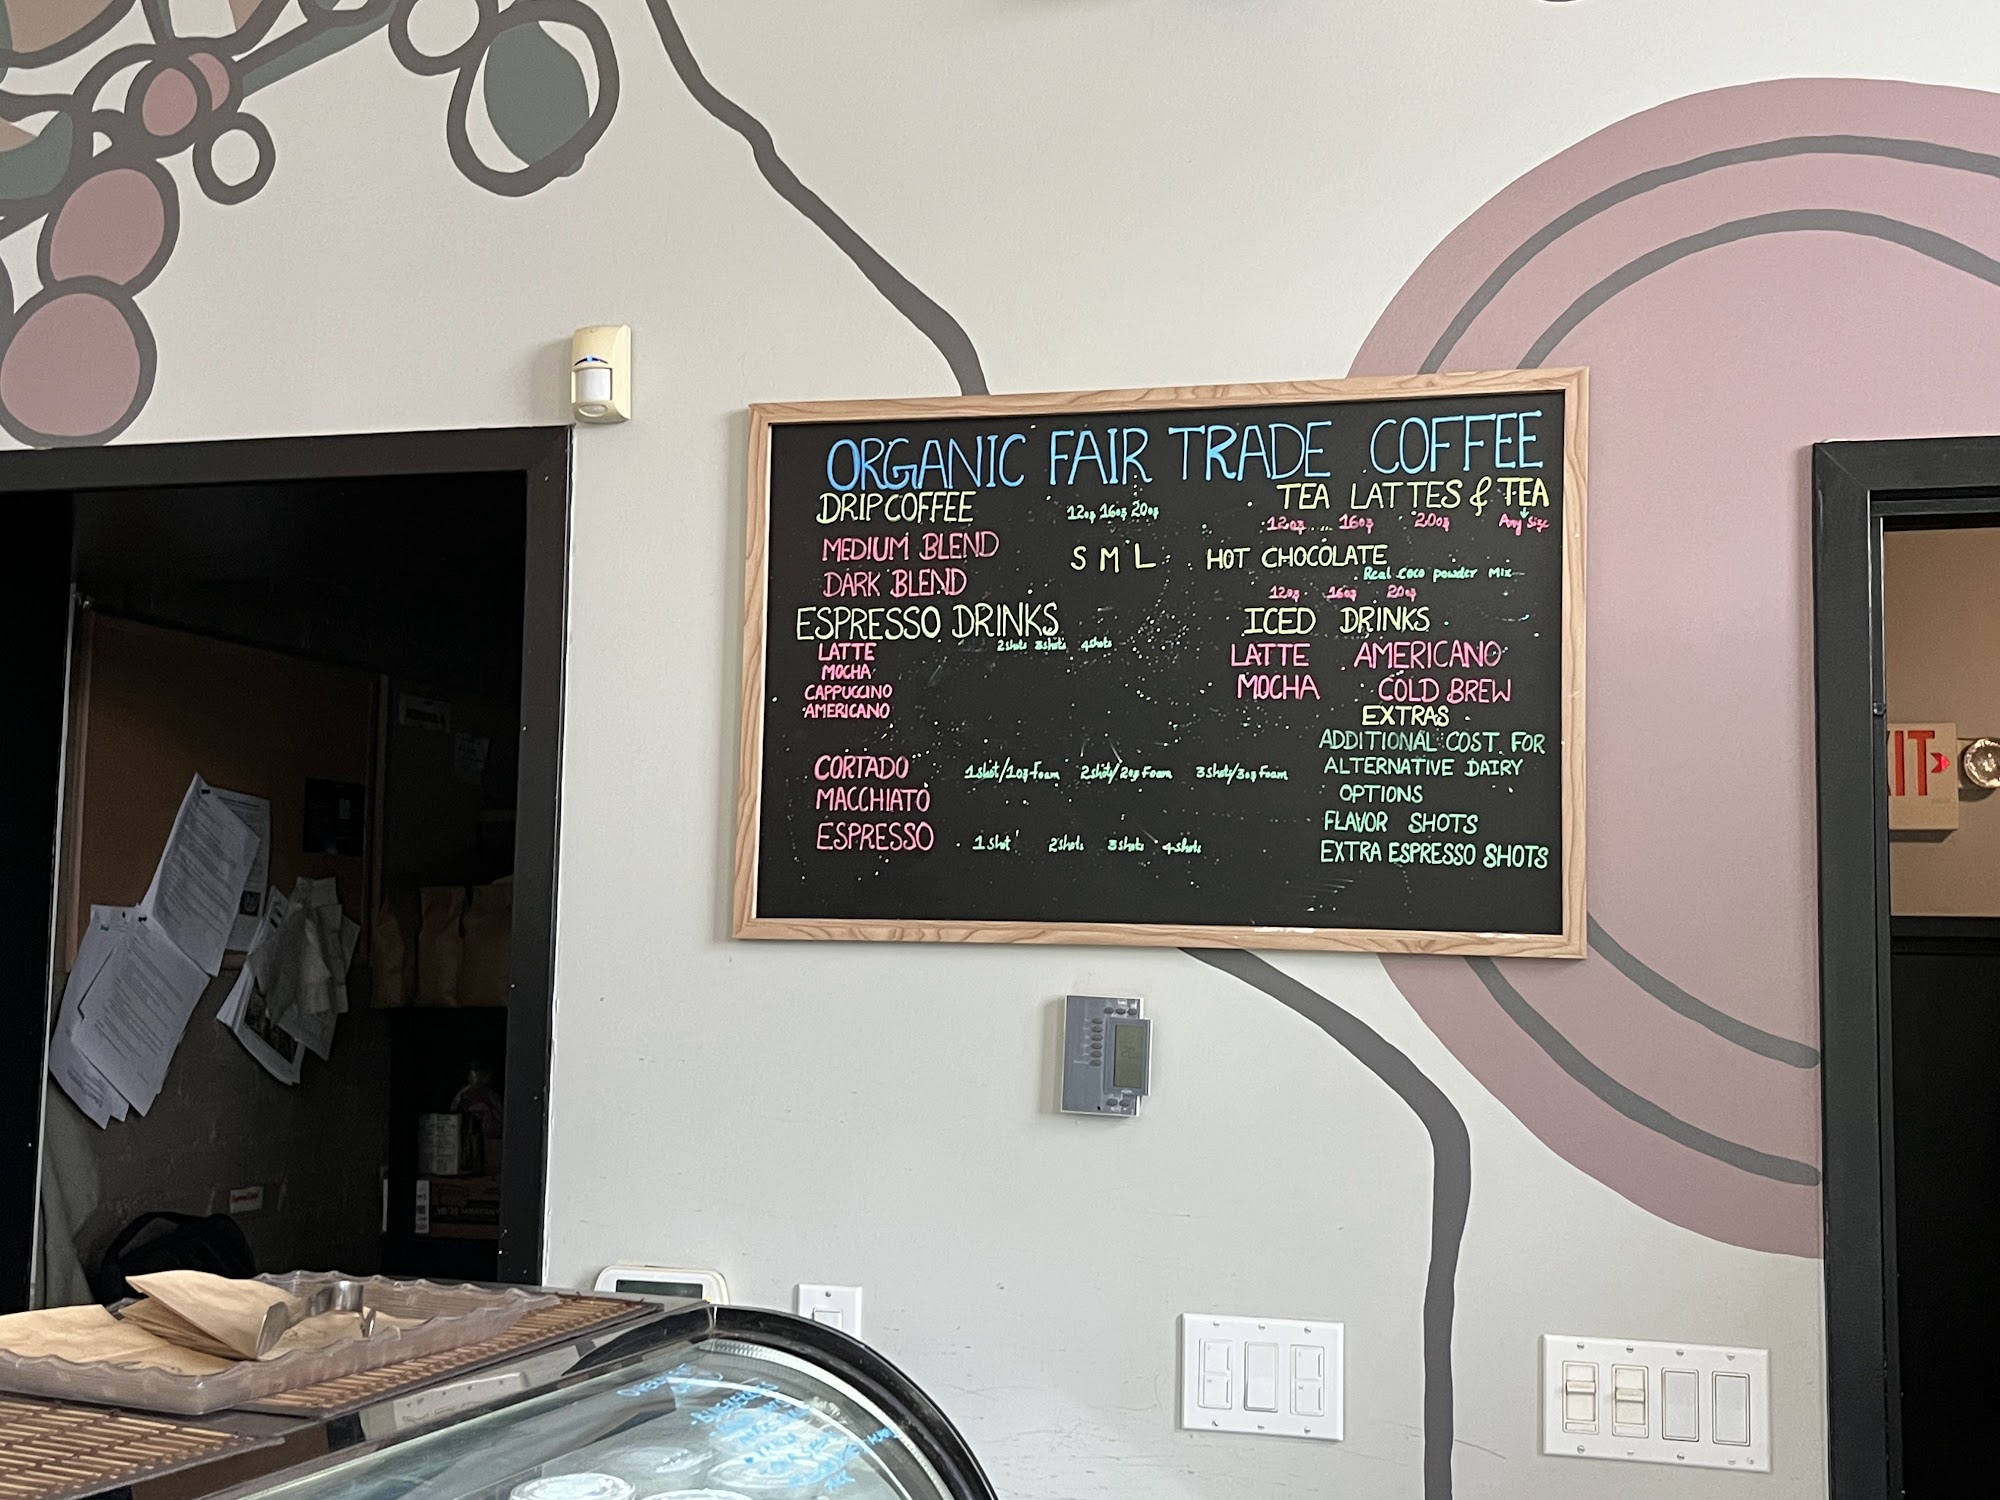 ORGANIC FAIR TRADE COFFEE
DRIP COFFEE
12oz 16oz 20oz
MEDIUM BLEND
DARK BLEND
S M L
ESPRESSO DRINKS
2shots 3shots 4shots
LATTE
MOCHA
CAPPUCCINO
AMERICANO
CORTADO 1shot/1oz Foam 2shots/2oz Foam 3shots/3oz Foam
MACCHIATO
ESPRESSO 1shot 2shots 3shots 4shots
TEA LATTES & TEA
12oz 16oz 20oz Any Size
HOT CHOCOLATE
Real Coco powder Mix
12oz 16oz 20oz
ICED DRINKS
LATTE AMERICANO
MOCHA COLD BREW
EXTRAS
ADDITIONAL COST FOR
ALTERNATIVE DAIRY
OPTIONS
FLAVOR SHOTS
EXTRA ESPRESSO SHOTS